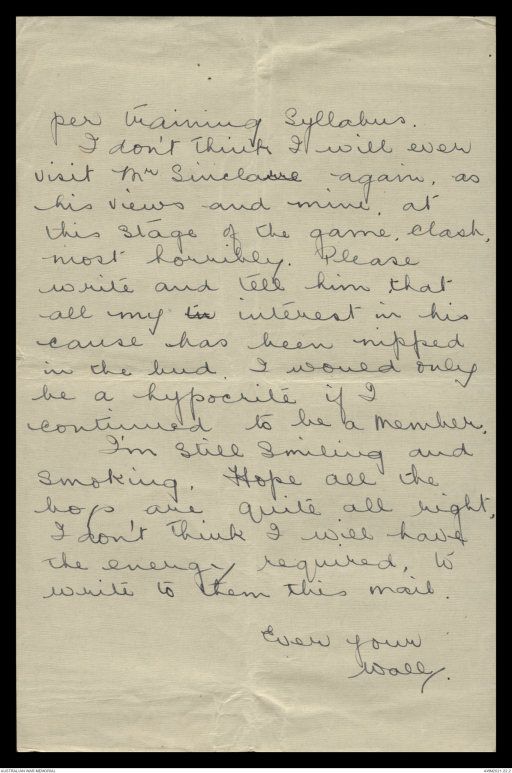 per training Syllabus.
I don't think I will ever
visit Mr Sinclaire again, as
his views and mine, at
this stage of the game, clash,
most horribly. Please
write and tell him that
all my in interest in his
cause has been nipped
in the bud. I would only
be a hypocrite if I
continued to be a member.
I'm still smiling and
smoking. Hope all the
boys are quite all right,
I don't think I will have
the energy required, to
write to them this mail.
Ever your
Wally.
AUSTRALIAN WAR MEMORIAL